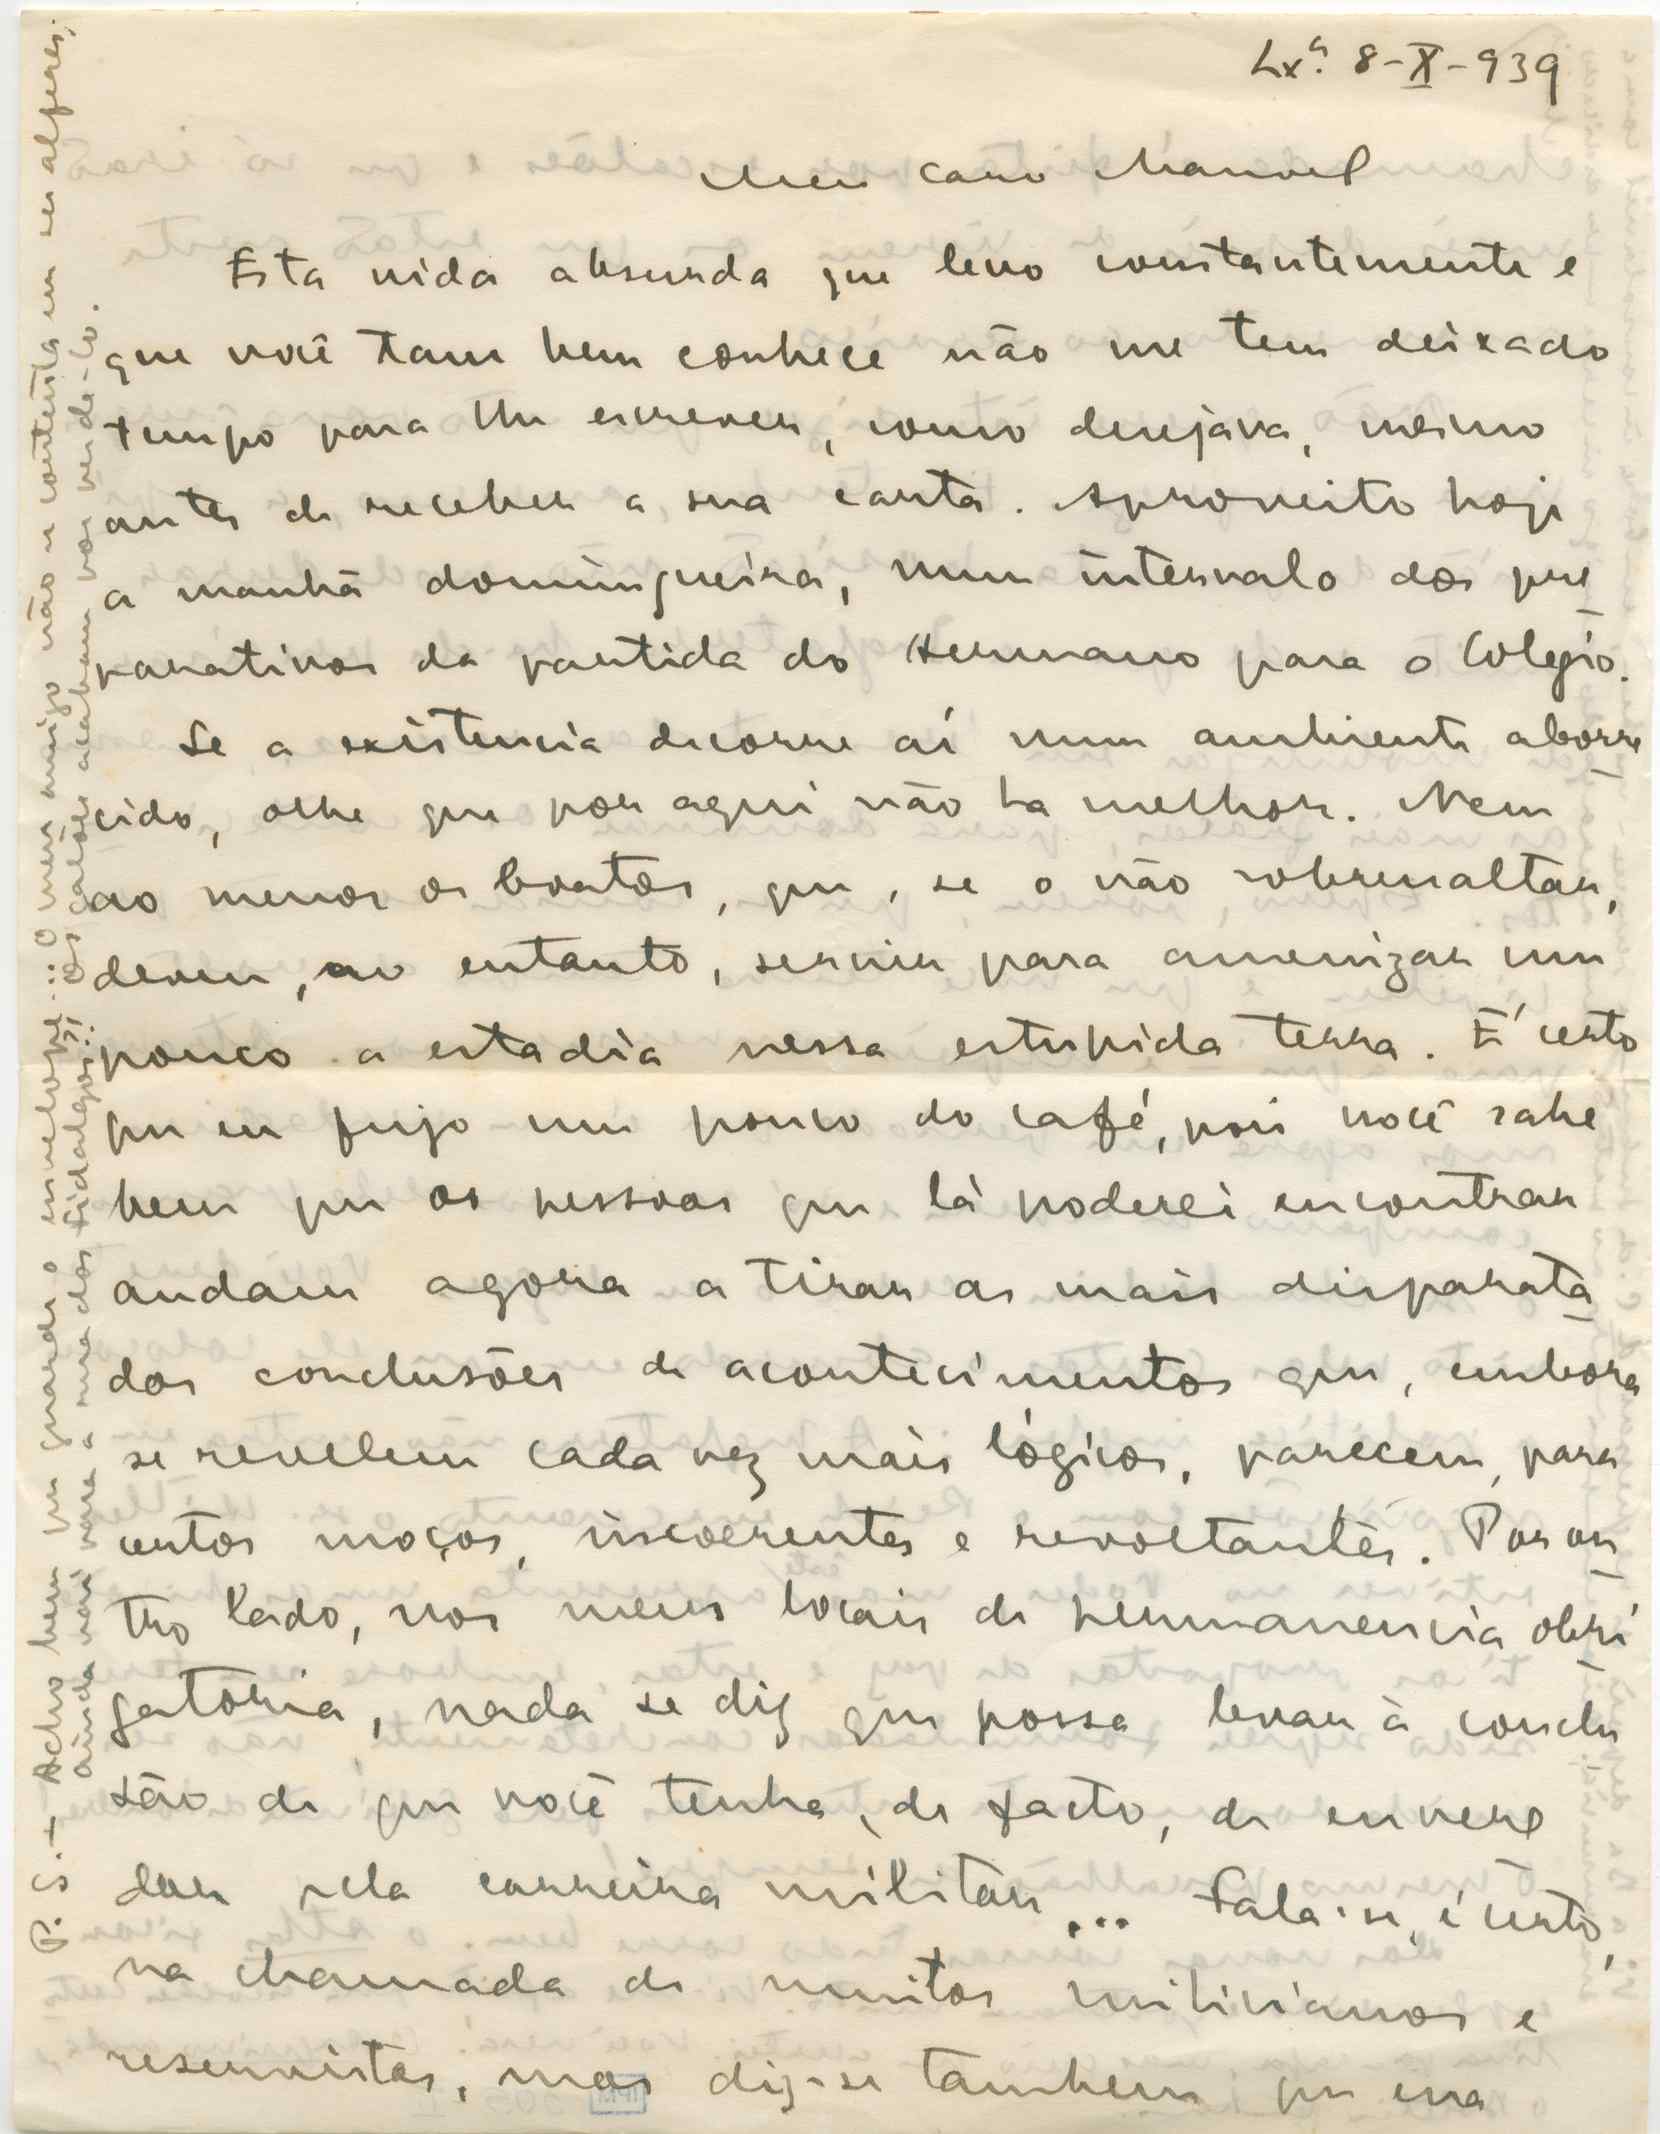 Lxª. 8-X-939
Meu caro Manuel
Esta vida absurda que levo constantemente e
que você tam bem conhece não me tem deixado
tempo para lhe escrever, como desejava, mesmo
antes de receber a sua carta. Aproveito hoje
a manhã domingueira, num intervalo dos pre
parativos da partida do Hermano para o Colegio.
Se a existencia decorre aí num ambiente aborre
cido, olhe que por aqui não ha melhor. Nem
ao menos os boatos, que, se o não sobresaltar,
devem, ao entanto, servir para amenizar um
pouco a estadia nessa estupida terra. É certo
que eu fujo um pouco do café, pois você sabe
bem que as pessoas que lá poderei encontrar
andam agora a tirar as mais disparata
das conclusões de acontecimentos que, embora
se revelem cada vez mais lógicos, parecem, para
certos moços, incoerentes e revoltantes. Por ou
tro lado, nos meus locais de permanencia obri
gatoria, nada se diz que possa levar à conclu
são de que você tenha, de facto, de envere
dar pela carreira militar... Fala-se, é certo,
na chamada de muitos milicianos e
reservistas, mas diz-se tambem que era
P.S. - Acho bem que guarde o envelope... O meu amigo não se contenta em ser alferes;
ainda vai para a rua dos Fidalgos!! Os galões acabam por perde-lo.